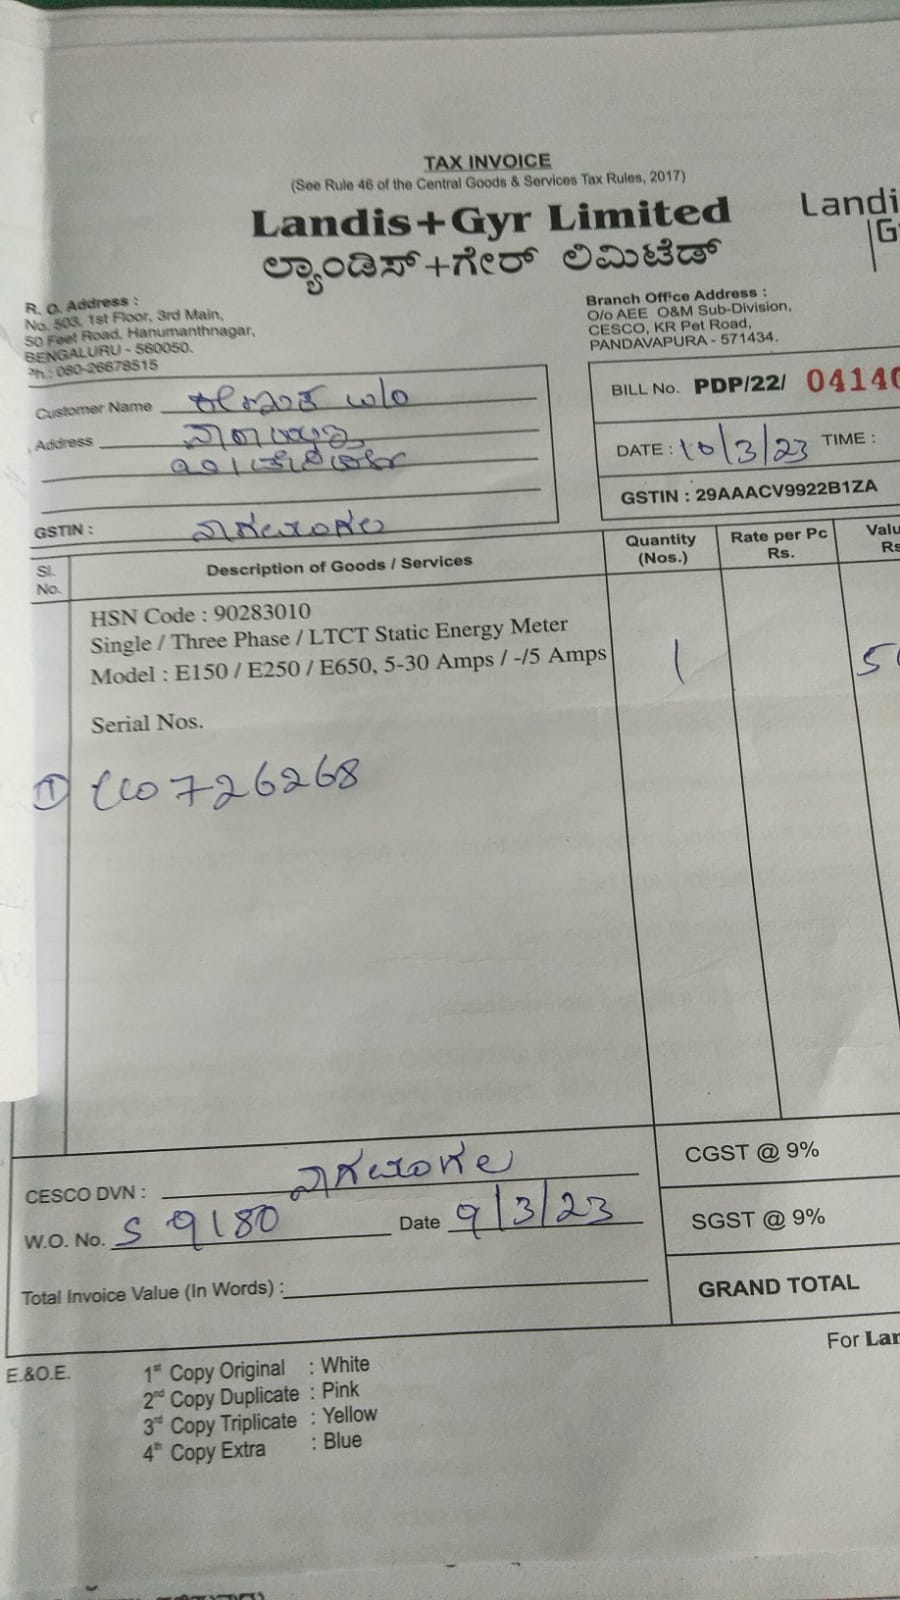 TAX INVOICE
(See Rule 46 of the Central Goods & Services Tax Rules, 2017)
Landis+Gyr Limited
ಲ್ಯಾಂಡಿಸ್+ಗೇರ್ ಲಿಮಿಟೆಡ್
Landi
G
R. O. Address :
No. 503, 1st Floor, 3rd Main,
50 Feet Road, Hanumanthnagar,
BENGALURU - 560050.
Ph.: 080-26678515
Branch Office Address :
O/o AEE O&M Sub-Division,
CESCO, KR Pet Road,
PANDAVAPURA - 571434.
Customer Name
Address
GSTIN : ನಾಗಮಂಗಲ
BILL No. PDP/22/ 04140
DATE : 10/3/23 TIME :
GSTIN : 29AAACV9922B1ZA
Sl. No. Description of Goods / Services Quantity (Nos.) Rate per Pc Rs. Valu Rs
HSN Code : 90283010
Single / Three Phase / LTCT Static Energy Meter
Model : E150 / E250 / E650, 5-30 Amps / -/5 Amps 1
Serial Nos.
① 726268
CESCO DVN : ನಾಗಮಂಗಲ
W.O. No. S 9180 Date 9/3/23
Total Invoice Value (In Words) :
CGST @ 9%
SGST @ 9%
GRAND TOTAL
E.&O.E.
For Lan
1st Copy Original : White
2nd Copy Duplicate : Pink
3rd Copy Triplicate : Yellow
4th Copy Extra : Blue